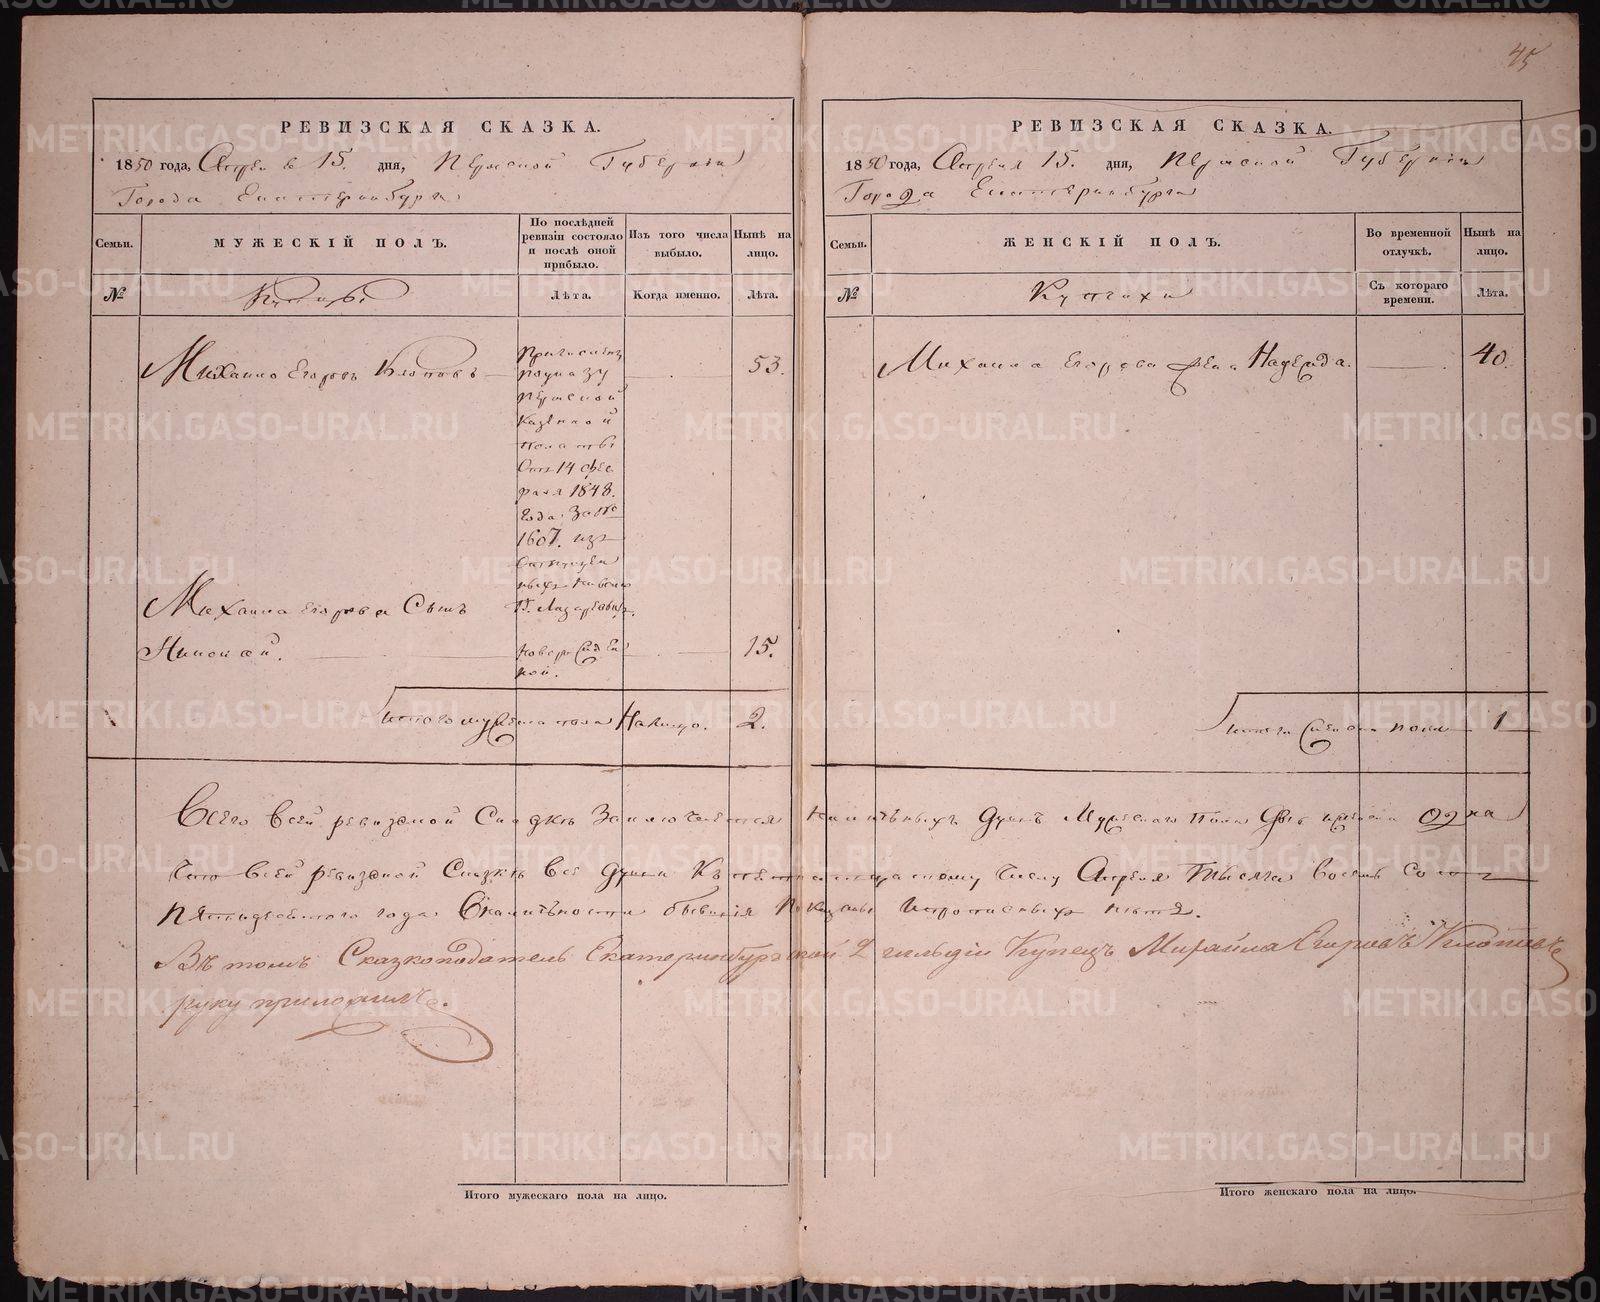 45
РЕВИЗСКАЯ СКАЗКА.
1850 года, Апреля 15. дня, Пермской Губернии
Города Екатеринбурга
Семьи.
МУЖЕСКІЙ ПОЛЪ.
По послѣдней ревизіи состояло и послѣ оной прибыло.
Изъ того числа выбыло.
Нынѣ на лицо.
№
Купцы
Лѣта.
Когда именно.
Лѣта.
Михаило Егоровъ Клоповъ
53.
Причисленъ
по указу
Пермской
Казенной
Палаты
отъ 14 фев
раля 1848.
года за №
1607. изъ
Михаила Егорова Сынъ
Николай.
15.
итого мужеска пола На лицо. 2.
РЕВИЗСКАЯ СКАЗКА.
1850 года, Апреля 15. дня, Пермской Губерніи
Города Екатеринбурга
Семьи.
ЖЕНСКІЙ ПОЛЪ.
Во временной отлучкѣ.
Нынѣ на лицо.
№
Купчихи
Съ котораго времени.
Лѣта.
Михаила Егорова жена Надежда.
40.
итого женска пола 1
Всего всей ревизской Сказкѣ Заключается наличныхъ душъ Мужескаго Пола Двѣ женска одна
Что всей ревизской Сказкѣ все души Къ тому Числу Апреля Тысяча восемь Сотъ
Пятидесятого года. В наличности бывшія Показаны И прописныхъ нетъ.
Въ томъ Сказкоподатель Екатеринбургской 2 гильдіи Купецъ Михайла Егоровъ Клоповъ
руку приложилъ.
Итого мужескаго пола на лицо.
Итого женскаго пола на лицо.
METRIKI.GASO-URAL.RU